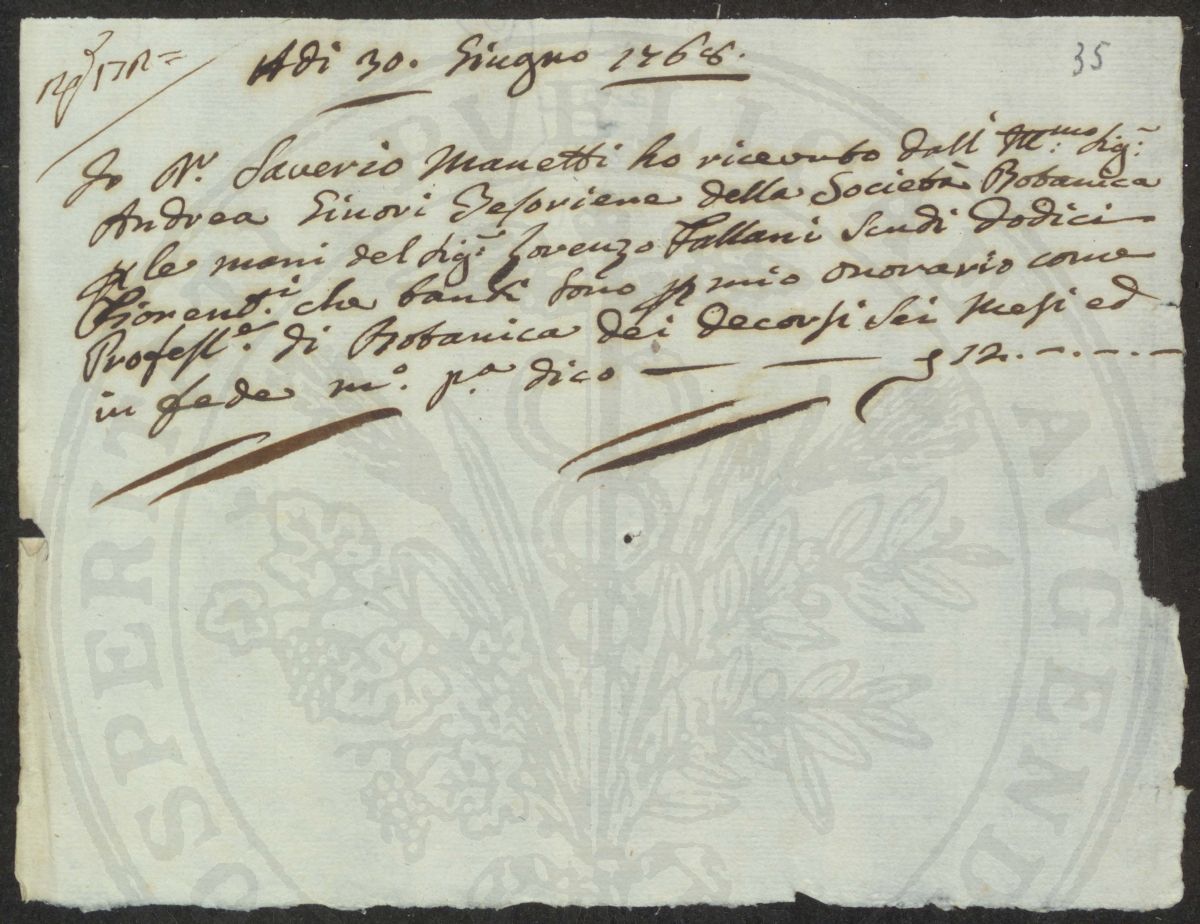 35
Adi 30. Giugno 1768.
Io Dr. Saverio Manetti ho ricevuto dall' Ill:mo Sig:r
Andrea Ginori Tesoriere della Società Botanica
p le mani del Sig:r Lorenzo Fallani Scudi dodici
Fiorent:i che tanti sono p mio onorario come
Profess:e di Botanica dei decorsi sei mesi ed
in fede m:o p:a dico 12.
PROSPERITATI PVBLICAE AVGENDAE